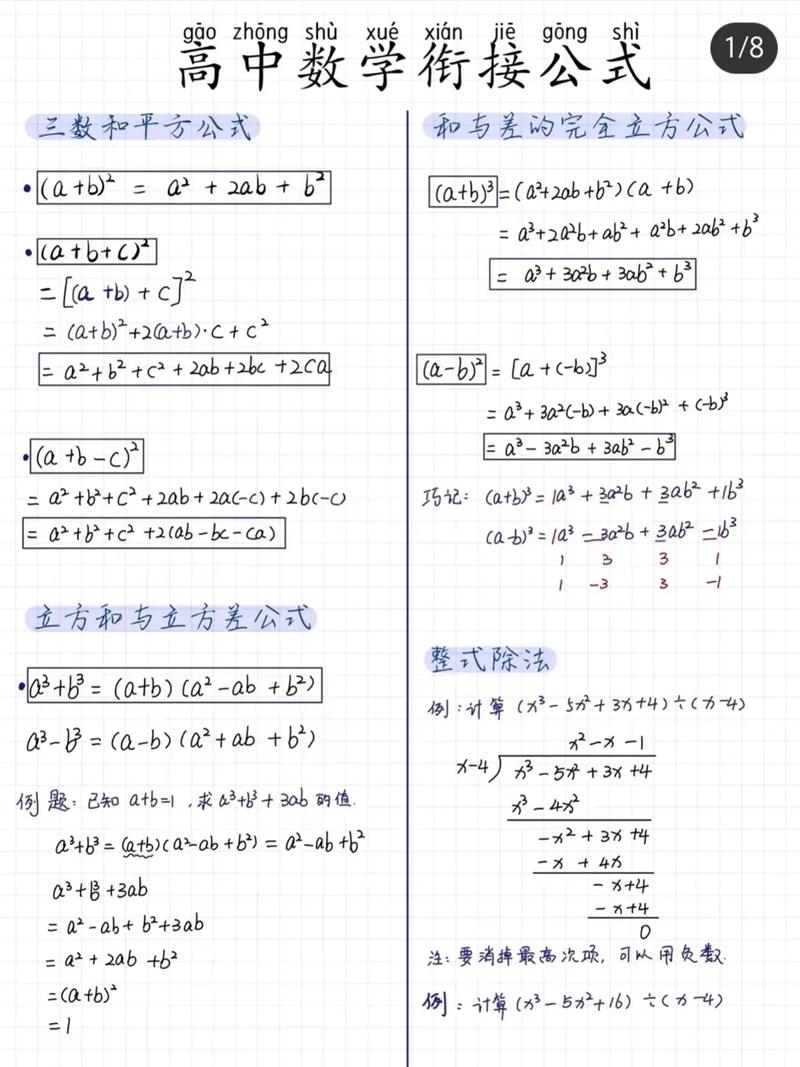 gāo zhōng shù xué xián jiē gōng shì
高中数学衔接公式
1/8
三数和平方公式
• (a+b)² = a² + 2ab + b²
• (a+b+c)²
= [(a+b)+c]²
= (a+b)²+2(a+b)·c+c²
= a²+b²+c²+2ab+2bc+2ca
• (a+b-c)²
= a²+b²+c²+2ab+2a(-c)+2b(-c)
= a²+b²+c²+2(ab-bc-ca)
立方和与立方差公式
• a³+b³=(a+b)(a²-ab+b²)
a³-b³=(a-b)(a²+ab+b²)
例题:已知 a+b=1,求a³+b³+3ab的值.
a³+b³=(a+b)(a²-ab+b²)=a²-ab+b²
a³+b³+3ab
= a²-ab+b²+3ab
= a²+2ab+b²
=(a+b)²
=1
和与差的完全立方公式
(a+b)³=(a²+2ab+b²)(a+b)
= a³+2a²b+ab²+a²b+2ab²+b³
= a³+3a²b+3ab²+b³
(a-b)²=[a+(-b)]³
= a³+3a²(-b)+3a(-b)²+(-b)³
= a³-3a²b+3ab²-b³
巧记:(a+b)³=1a³+3a²b+3ab²+1b³
(a-b)³=1a³-3a²b+3ab²-1b³
1 3 3 1
1 -3 3 -1
整式除法
例:计算(x³-5x²+3x+4)÷(x-4)
x²-x-1
x-4)x³-5x²+3x+4
x³-4x²
-x²+3x+4
-x+4x
-x+4
-x+4
0
注:要消掉最高次项,可以用负数.
例:计算(x³-5x²+16)÷(x-4)